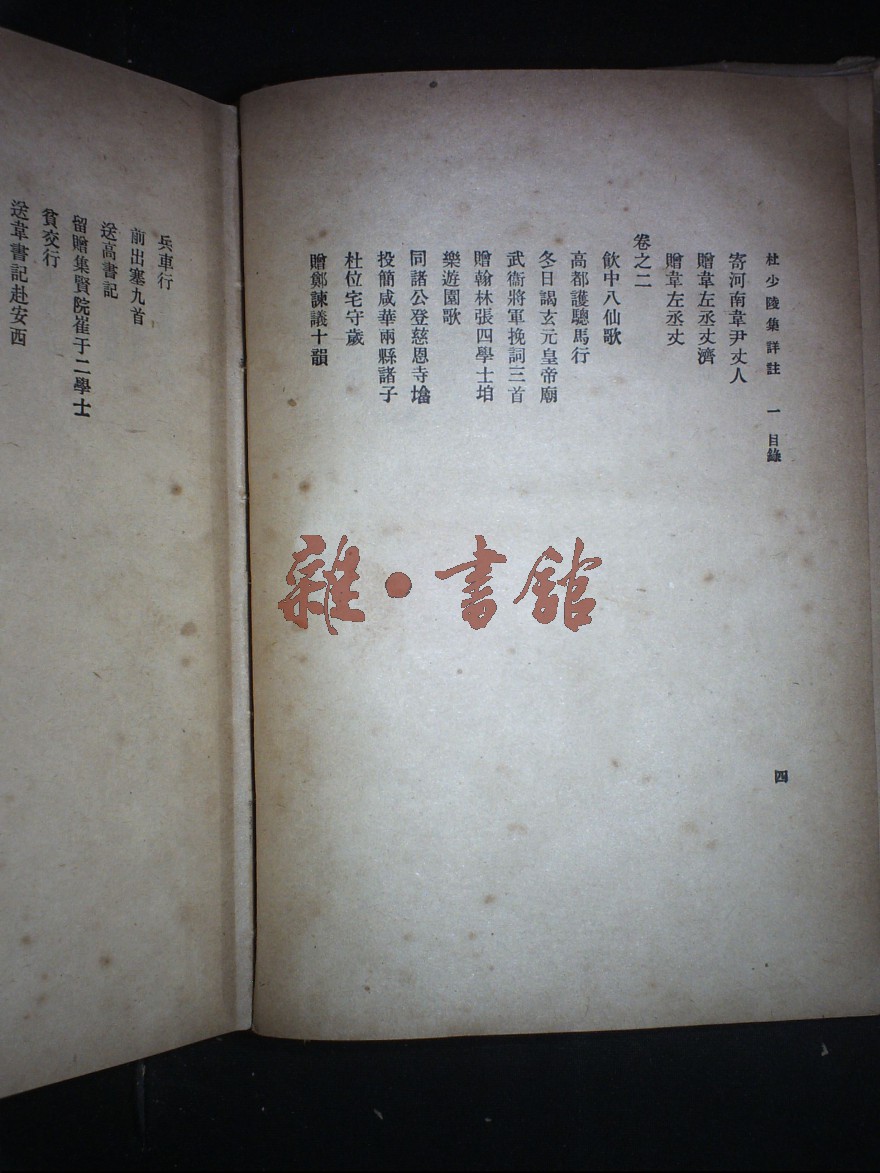 杜少陵集詳註 一 目錄
四
寄河南韋尹丈人
贈韋左丞丈濟
贈韋左丞丈
卷之二
飲中八仙歌
高都護驄馬行
冬日謁玄元皇帝廟
武衞將軍挽詞三首
贈翰林張四學士垍
樂遊園歌
同諸公登慈恩寺墖
投簡咸華兩縣諸子
杜位宅守歲
贈鄭諫議十韻
兵車行
前出塞九首
送高書記
留贈集賢院崔于二學士
貧交行
送韋書記赴安西
雜·書館